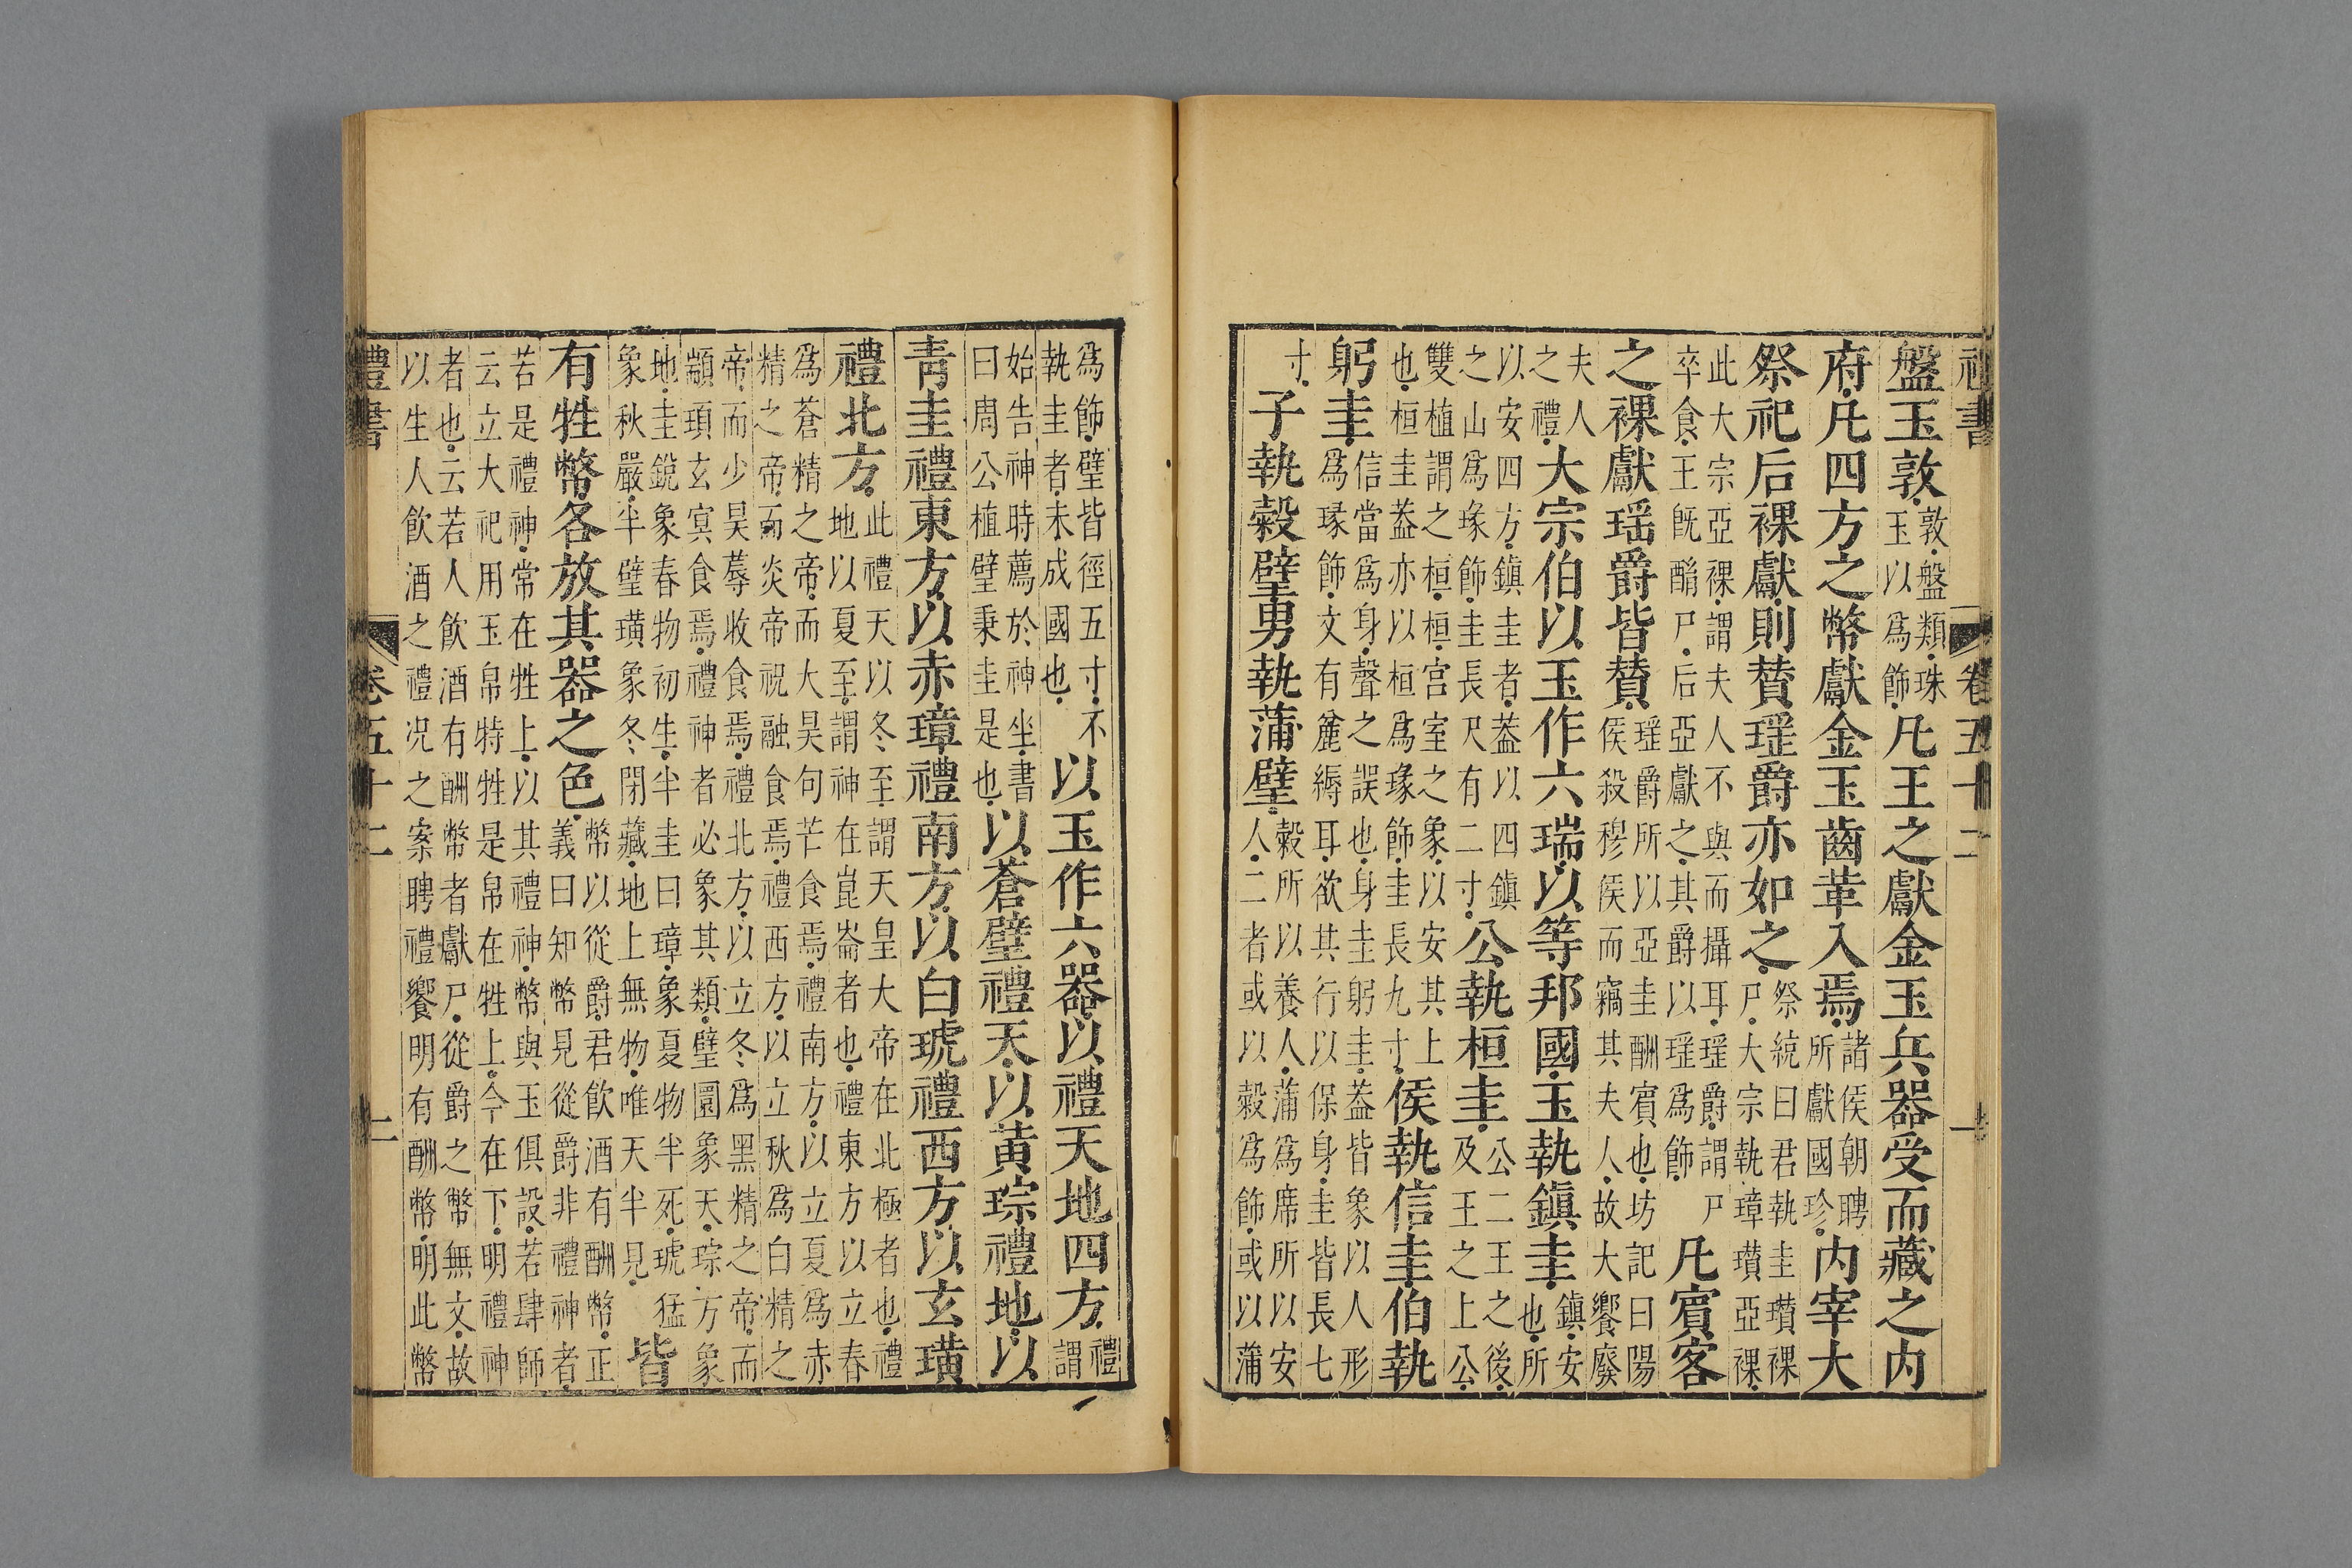 禮書 卷五十二 一
盤玉敦敦盤類珠玉以為飾凡王之獻金玉兵器受而藏之内
府凡四方之幣獻金玉齒革入焉諸侯朝聘所獻國珍内宰大
祭祀后祼獻則賛瑶爵亦如之祭統曰君執圭瓉祼尸大宗執璋瓉亞祼
此大宗亞祼謂夫人不與而攝耳瑶爵謂尸卒食王旣酳尸后亞獻之其爵以瑶為飾凡賓客
之祼獻瑶爵皆賛瑶爵所以亞圭酬賓也坊記曰陽侯殺穆侯而竊其夫人故大饗廢
夫人之禮大宗伯以玉作六瑞以等邦國玉執鎭圭鎭安也所
以安四方鎭圭者葢以四鎭之山為瑑飾圭長尺有二寸公執桓圭公二王之後及王之上公
雙植謂之桓桓宮室之象以安其上也桓圭葢亦以桓為瑑飾圭長九寸侯執信圭伯執
躬圭信當為身聲之誤也身圭躬圭葢皆象以人形為瑑飾文有麄縟耳欲其行以保身圭皆長七
寸子執穀璧男執蒲璧穀所以養人蒲為席所以安人二者或以穀為飾或以蒲
為飾璧皆徑五寸不執圭者未成國也以玉作六器以禮天地四方禮謂
始告神時薦於神坐書曰周公植璧秉圭是也以蒼璧禮天以黄琮禮地以
青圭禮東方以赤璋禮南方以白琥禮西方以玄璜
禮北方此禮天以冬至謂天皇大帝在北極者也禮地以夏至謂神在崑崙者也禮東方以立春
為蒼精之帝而大昊句芒食焉禮南方以立夏為赤精之帝而炎帝祝融食焉禮西方以立秋為白精之
帝而少昊蓐收食焉禮北方以立冬為黑精之帝而顓頊玄冥食焉禮神者必象其類璧圜象天琮方象
地圭銳象春物初生半圭曰璋象夏物半死琥猛象秋嚴半璧璜象冬閉藏地上無物唯天半見皆
有牲幣各放其器之色幣以從爵君飲酒有酬幣正義曰知幣見從爵非禮神者
若是禮神常在牲上以其禮神幣與玉俱設若肆師云立大祀用玉帛特牲是帛在牲上今在下明禮神
者也云若人飲酒有酬幣者獻尸從爵之幣無文故以生人飲酒之禮况之案聘禮饗明有酬幣明此幣
禮書 卷五十二 二